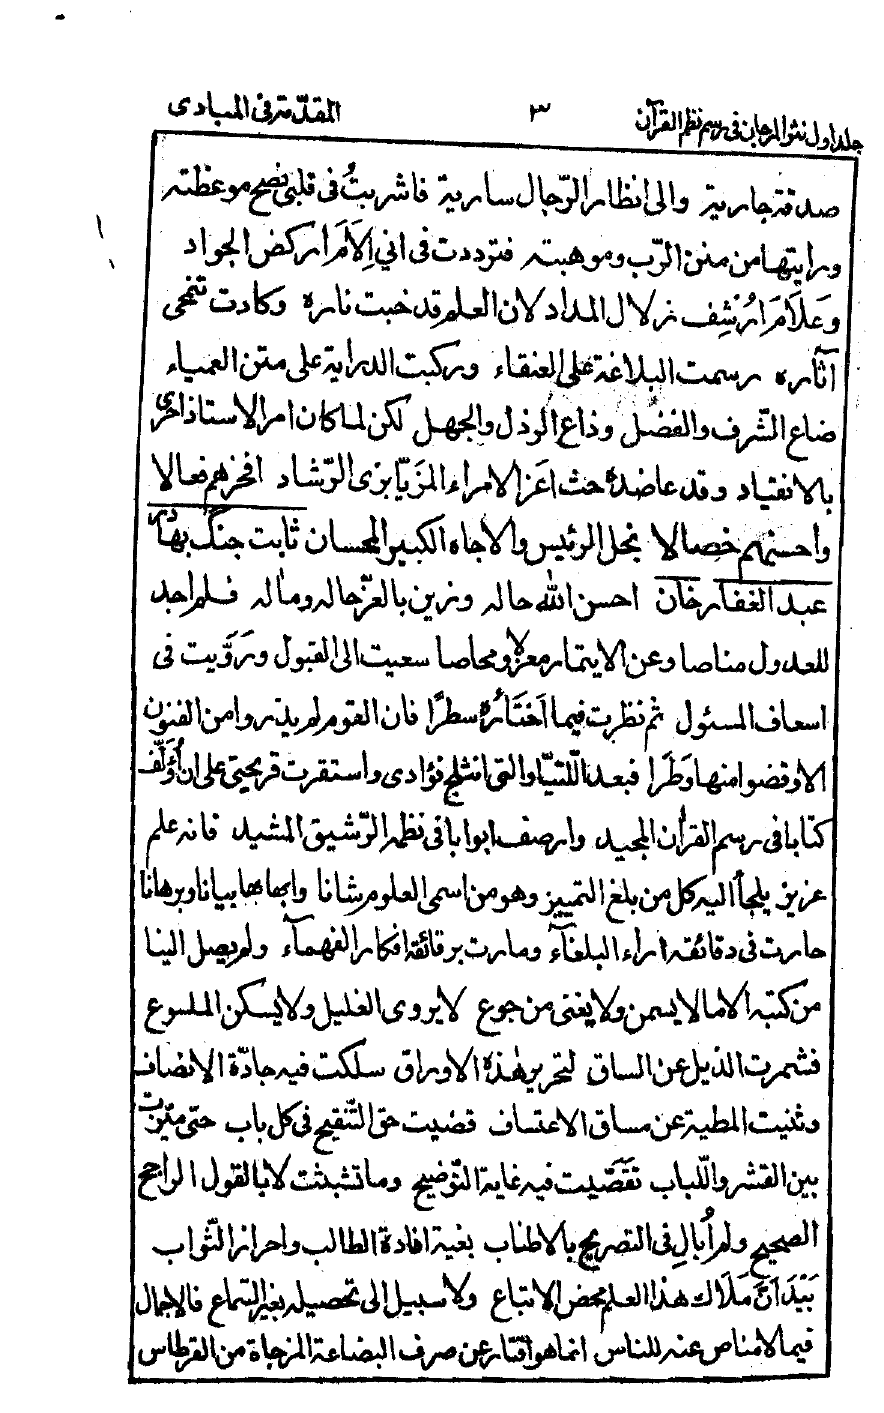 جلد اول نثر المرجان فی رسم نظم القرآن ٣ المقدّمة فی المبادی
صدقة جارية والی انظار الرّجال سارية فاشربتُ فی قلبی نصح موعظته
ورايتها من منن الرّب وموهبته فترددت فی اني اِلَامَ اركض الجواد
وَعَلَامَ ارُشِف زلال المداد لان العلم قد خبت ناره وكادت تنمحی
آثاره رسمت البلاغة علی العنقاء وركبت الدراية علی متن العمياء
ضاع الشّرف والفضل وذاع الرذل والجهل لكن لما كان امر الاستاذ احری
بالانقياد وقد عاضده حث اعَز الامراء المَزيّا بزی الرّشاد افخرهم فعالا
واحسنهم خصالا نجل الرئيس والاجاه الكبير المحسان ثابت جنگ بهادر
عبد الغفار خان احسن الله حاله وزين بالعزّ حاله وماله فلم اجد
للعدول مناصا وعن الايتمار معزلا ومحاصا سعيت الی القبول ورَوَّيت فی
اسعاف المسئول ثم نظرت فيما اَختَارُه سطرًا فان القوم لم يذروا من الفنون
الا وقضوا منها وَطَرًا فبعد اللّتيّا والتی انثلج فؤادی واستقرت قريحتی علی ان اُؤلِّف
كتابا فی رسم القرآن المجيد وارصف ابوابا فی نظم الرّشيق المشيد فانه علم
عزيز يلجأ اليه كل من بلغ التمييز وهو من اسمی العلوم شانا وابهاها بيانا وبرهانا
حارت فی دقائقه اراء البلغآء ومارت برقائقه افكار الفهمآء ولم يصل الينا
من كتبه الا ما لا يسمن ولا يغنی من جوع لا يروی الغليل ولا يسكن الملسوع
فشمرت الذيل عن الساق لتحرير هٰذه الاوراق سلكت فيه جادّة الانصاف
وثنيت المطية عن مساق الاعتساف قضيت حق التّنقيح فی كل باب حتی ميّزت
بين القشر واللّباب تقَصّيت فيه غاية التّوضيح وما تشبثت الا بالقول الراجح
الصحيح ولم اُبالِ فی التصريح بالاطناب بغية افادة الطالب واحراز الثّواب
بَيْدَ اَنَّ مَلَاك هذا العلم محض الاتباع ولا سبيل الی تحصيله بغير السّماع فالاجمال
فيما لا مناص عنه للناس انما هو اقتار عن صرف البضاعة المزجاة من القرطاس